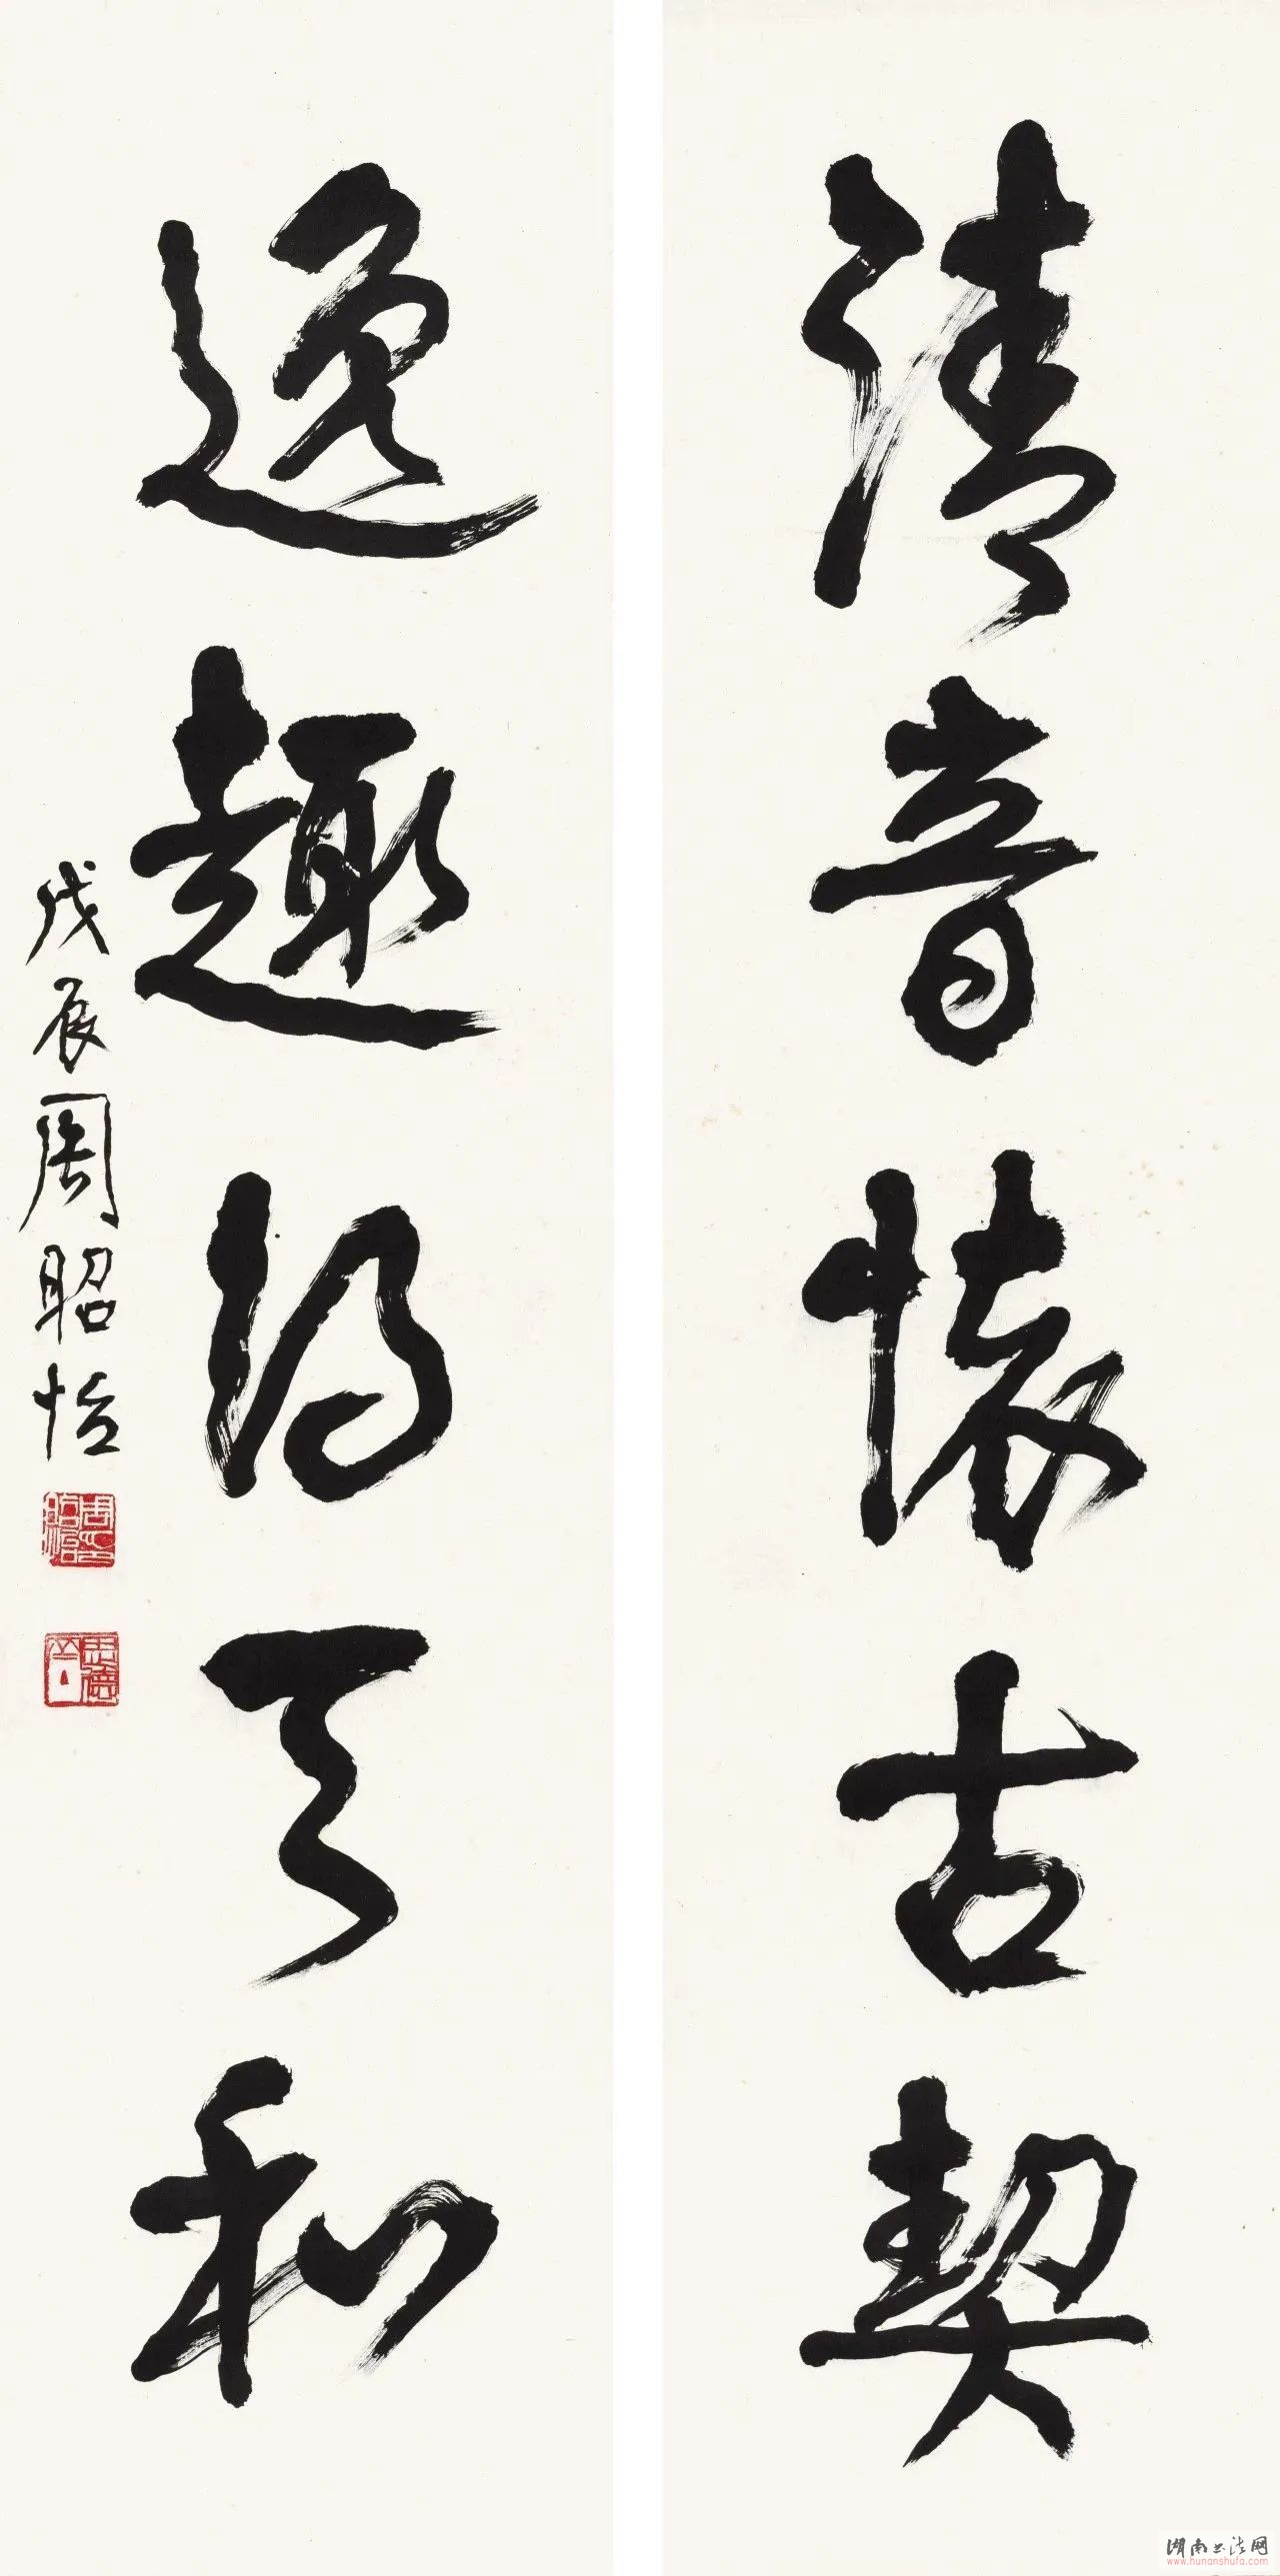 清音怀古契
逸趣得天和
戊辰周昭怡
周昭怡印
湖南书法网
www.hunanshufa.com